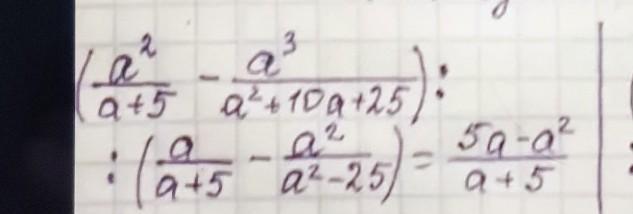 (a²/(a+5) - a³/(a²+10a+25)) :
: (a/(a+5) - a²/(a²-25)) = (5a-a²)/(a+5)